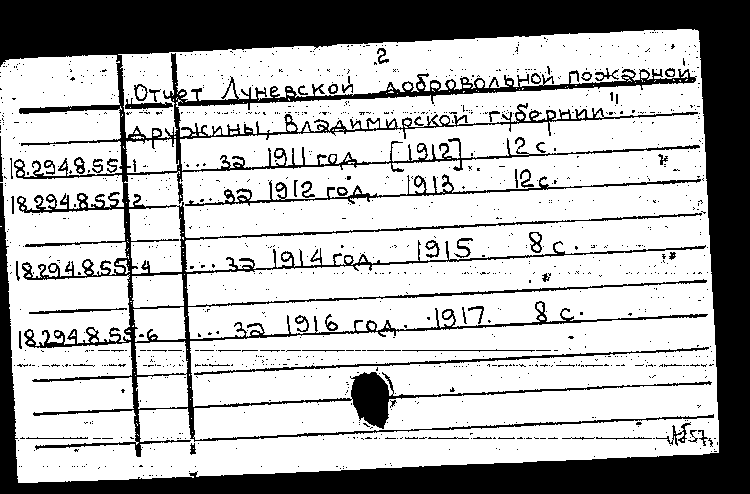 2
„Отчет Луневской добровольной пожарной
дружины, Владимирской губернии"...
18.294.8.55-1 ... за 1911 год. [1912]. 12 с.
18.294.8.55-2 ... за 1912 год. 1913. 12 с.
18.294.8.55-4 ... за 1914 год. 1915. 8 с.
18.294.8.55-6 ... за 1916 год. 1917. 8 с.